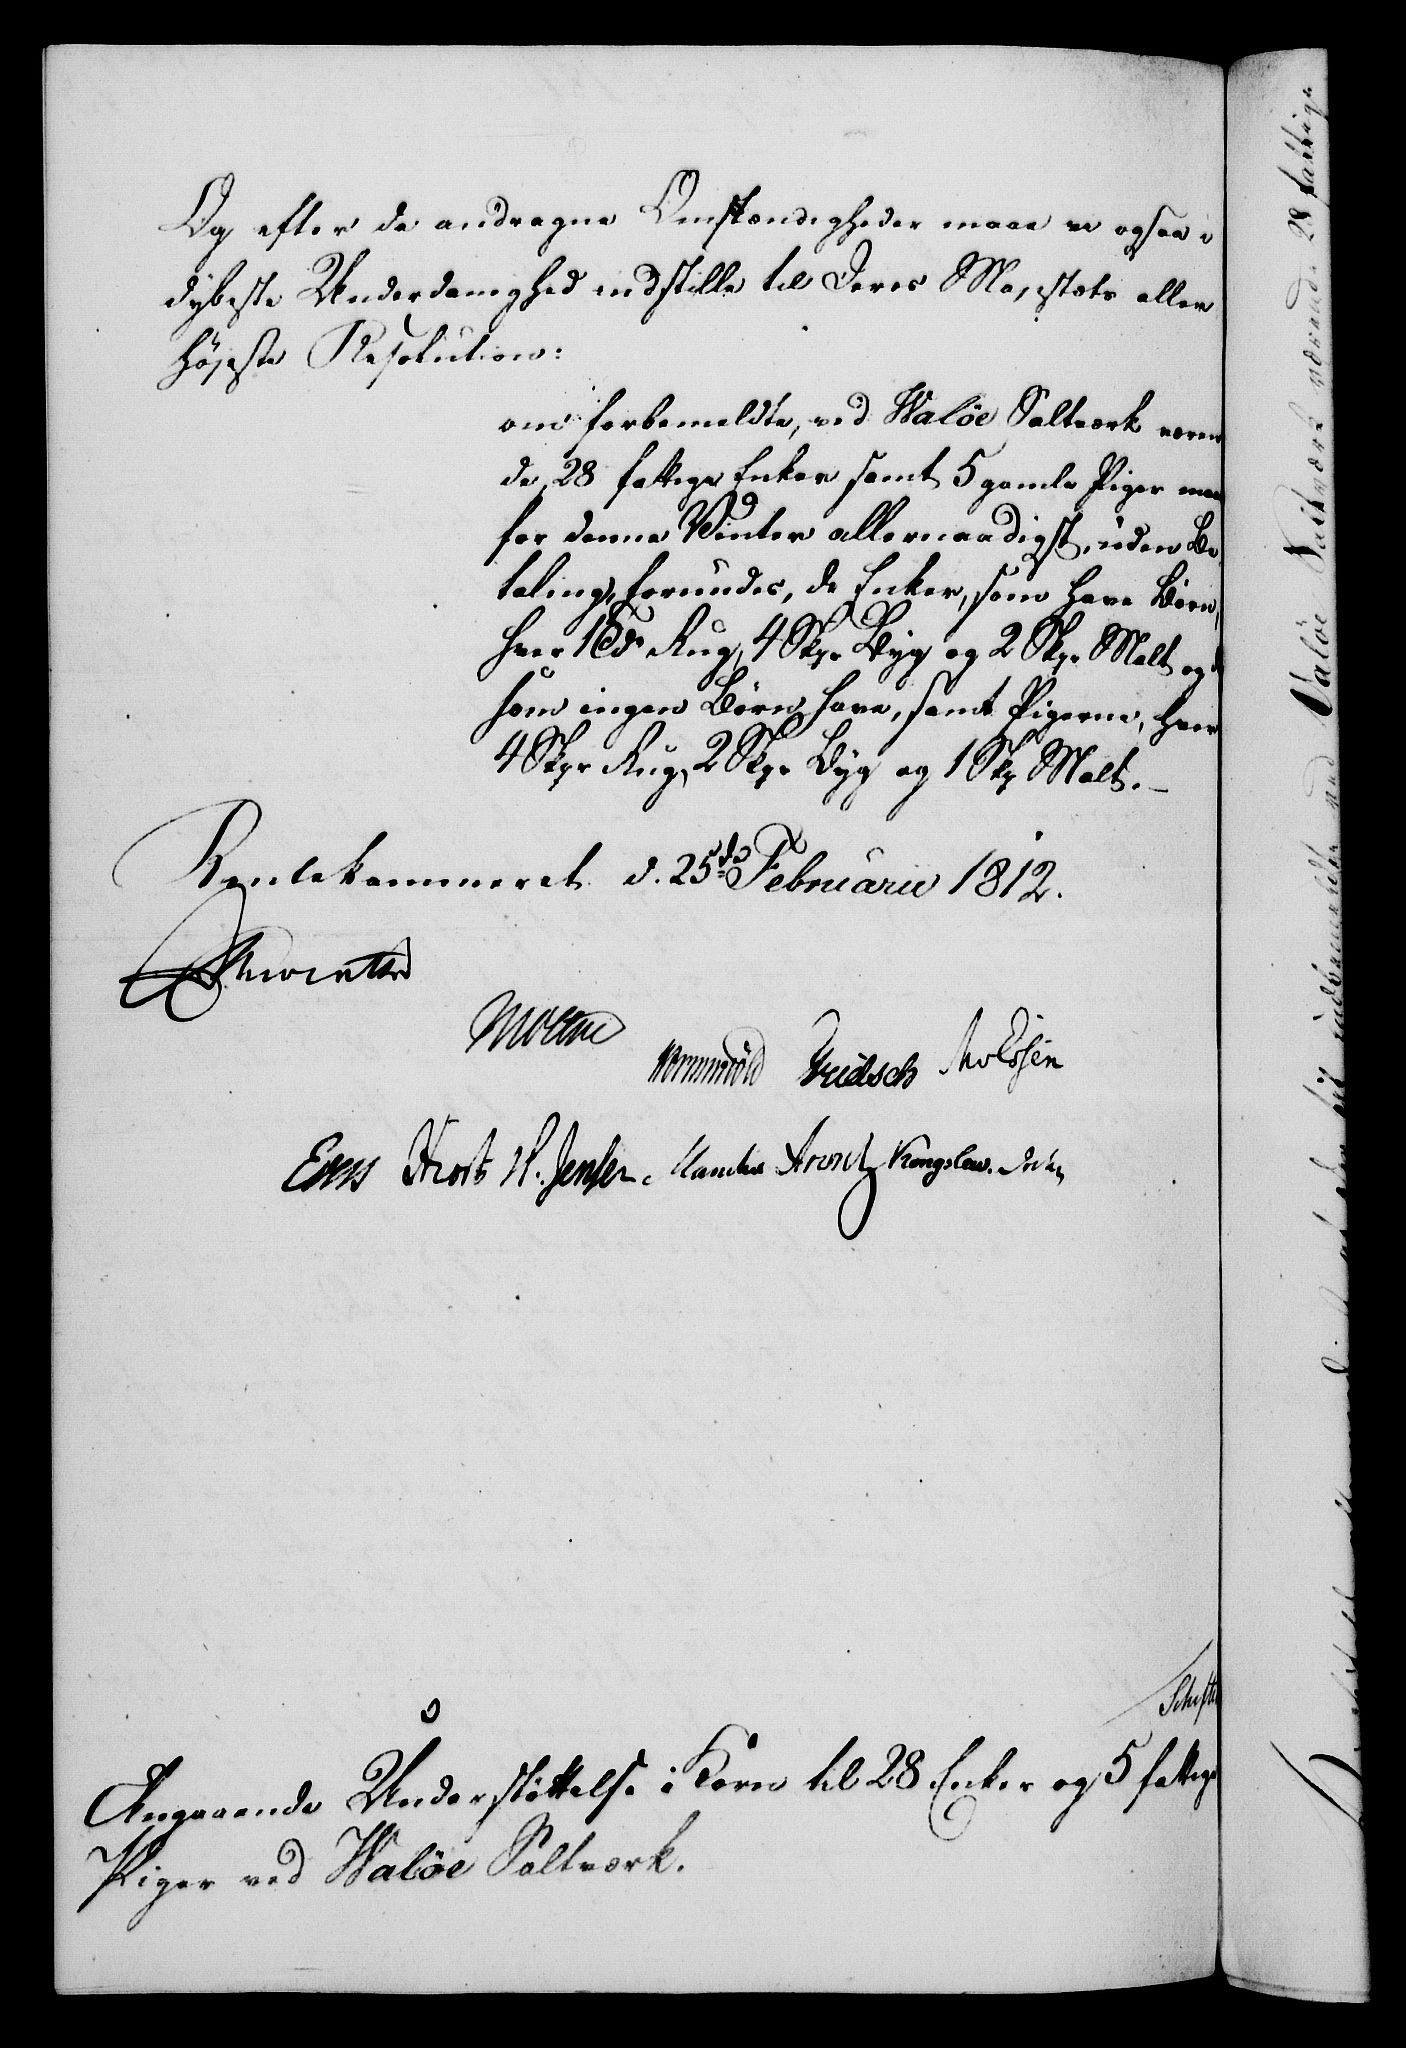 Og efter de andragne Omstændigheder maae vi ogsaa i
dybeste Underdanighed indstille til Deres Majestæts aller
höjeste Resolution:
om forbemeldte, ved Waløe Saltværk væren
de, 28 fattige Enker samt 5 gamle Piger maa
for denne Vinter allernaadigst, uden Be
taling, forundes, de Enker, som have Børn,
hver 1 Tde Rug, 4 Skpr Byg og 2 Skpr Malt og de
som ingen Børn have, samt Pigerne, hver
4 Skpr Rug, 2 Skpr Byg og 1 Skp Malt.
Rentekammeret d. 25de Februarii 1812.
Moltke
Wormskiold
Knudsen H. Jensen.
Angaaende Understöttelse i Korn til 28 Enker og 5 fattige
Piger ved Waløe Saltværk.
Valøe Saltværk værende 28 fattige